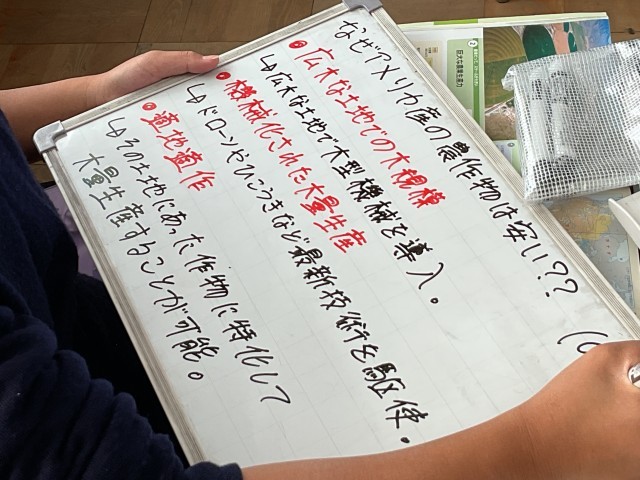 なぜアメリカ産の農作物は安い??
• 広大な土地での大規模
↳ 広大な土地で大型機械を導入。
• 機械化された大量生産
↳ ドローンやひこうきなど最新技術を駆使。
• 適地適作
↳ その土地にあった作物に特化して
大量生産することが可能。